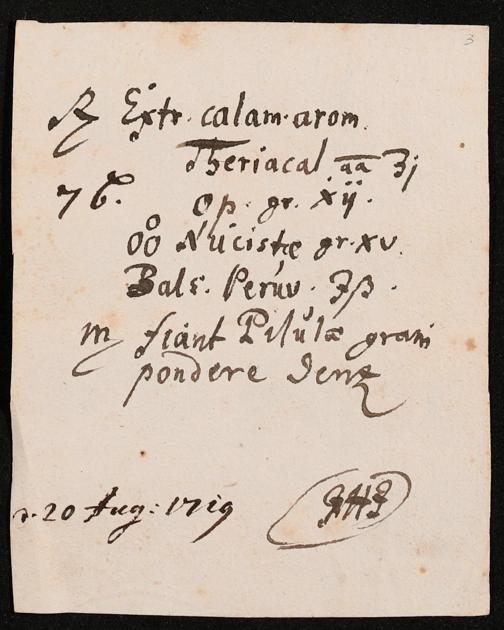 3
℞ Extr. calam. arom.
Theriacal. aa ʒj
76. Op. gr. xij.
Nucistæ gr. xv.
Bals. Peruv. ʒß.
m fiant Pilulæ grani
pondere
d. 20 Aug: 1719